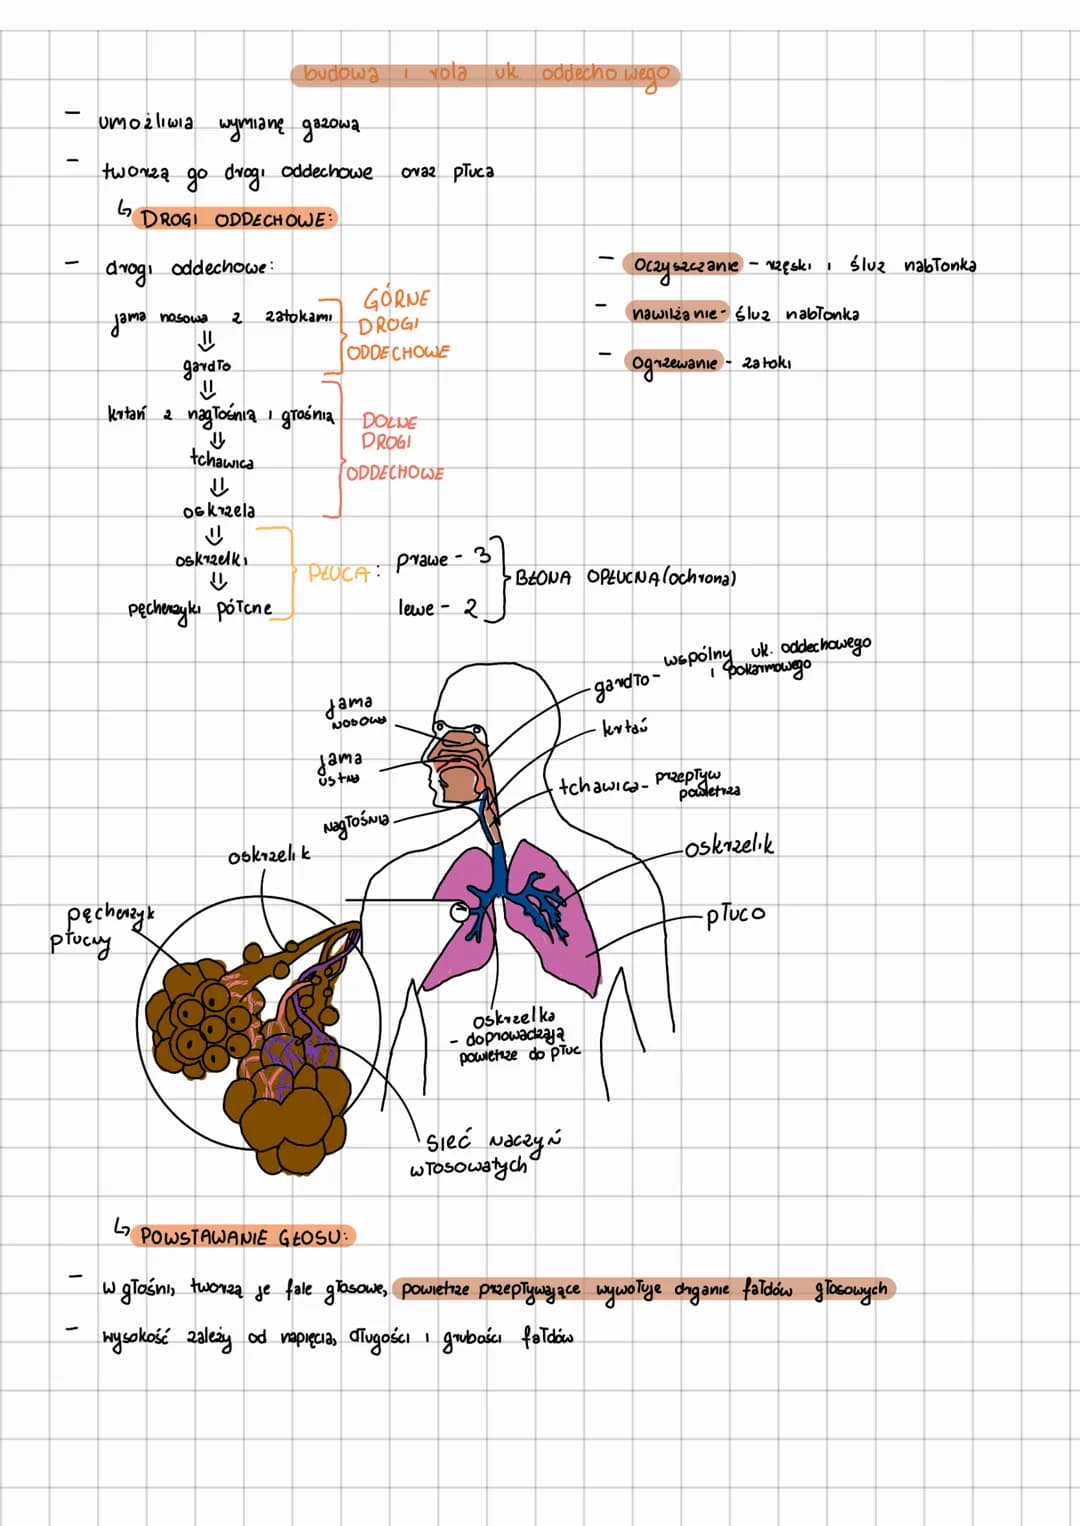 budowa i rola uk. oddechowego
- umożliwia wymianę gazową
- tworzą go drogi oddechowe oraz płuca
↳ DROGI ODDECHOWE:
- drogi oddechowe:
jama nosowa z zatokami
⇓
gardło
⇓
krtań z nagłośnią i głośnią
⇓
tchawica
⇓
oskrzela
⇓
oskrzelki
⇓
pęcherzyki półcne
GÓRNE
DROGI
ODDECHOWE
DOLNE
DROGI
ODDECHOWE
- Oczyszczanie - rzęski i śluz nabłonka
- nawilżanie - śluz nabłonka
- Ogrzewanie - zatoki
PŁUCA: prawe - 3
lewe - 2
BŁONA OPŁUCNA (ochrona)
jama
nosowa
jama
ustna
nagłośnia
gardło - wspólny uk. oddechowego
i pokarmowego
krtań
tchawica - przepływ
powietrza
oskrzelik
oskrzelik
pęcherzyk
płucny
płuco
oskrzelka
- doprowadzają
powietrze do płuc
sieć naczyń
włosowatych
↳ POWSTAWANIE GŁOSU:
- w głośni, tworzą je fale głosowe, powietrze przepływające wywołuje drganie fałdów głosowych
- wysokość zależy od napięcia, długości i grubości fałdów